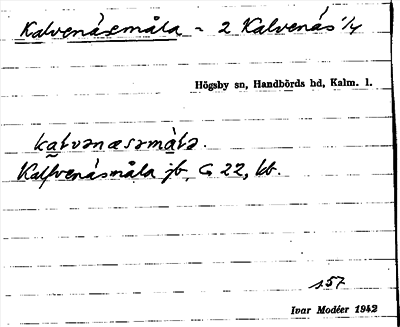 Kalvenäsemåla - 2 Kalvenäs 1/4
Högsby sn, Handbörds hd, Kalm. l.
kalvənæsəmåla.
Kalfvenäsmåla jb, G 22, kb.
s 57
Ivar Modéer 1942